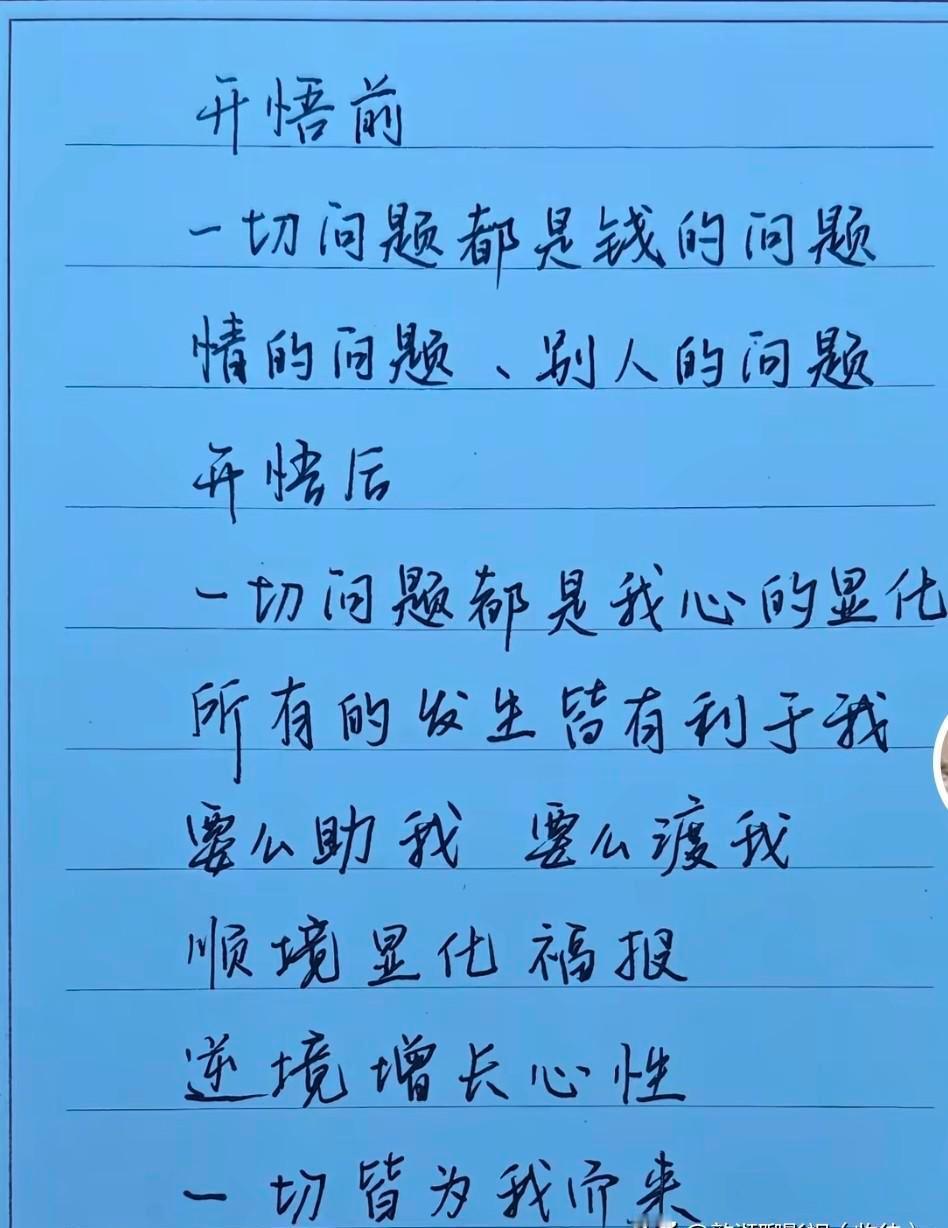 开悟前
一切问题都是钱的问题
情的问题、别人的问题
开悟后
一切问题都是我心的显化
所有的发生皆有利于我
要么助我 要么渡我
顺境显化福报
逆境增长心性
一切皆为我而来